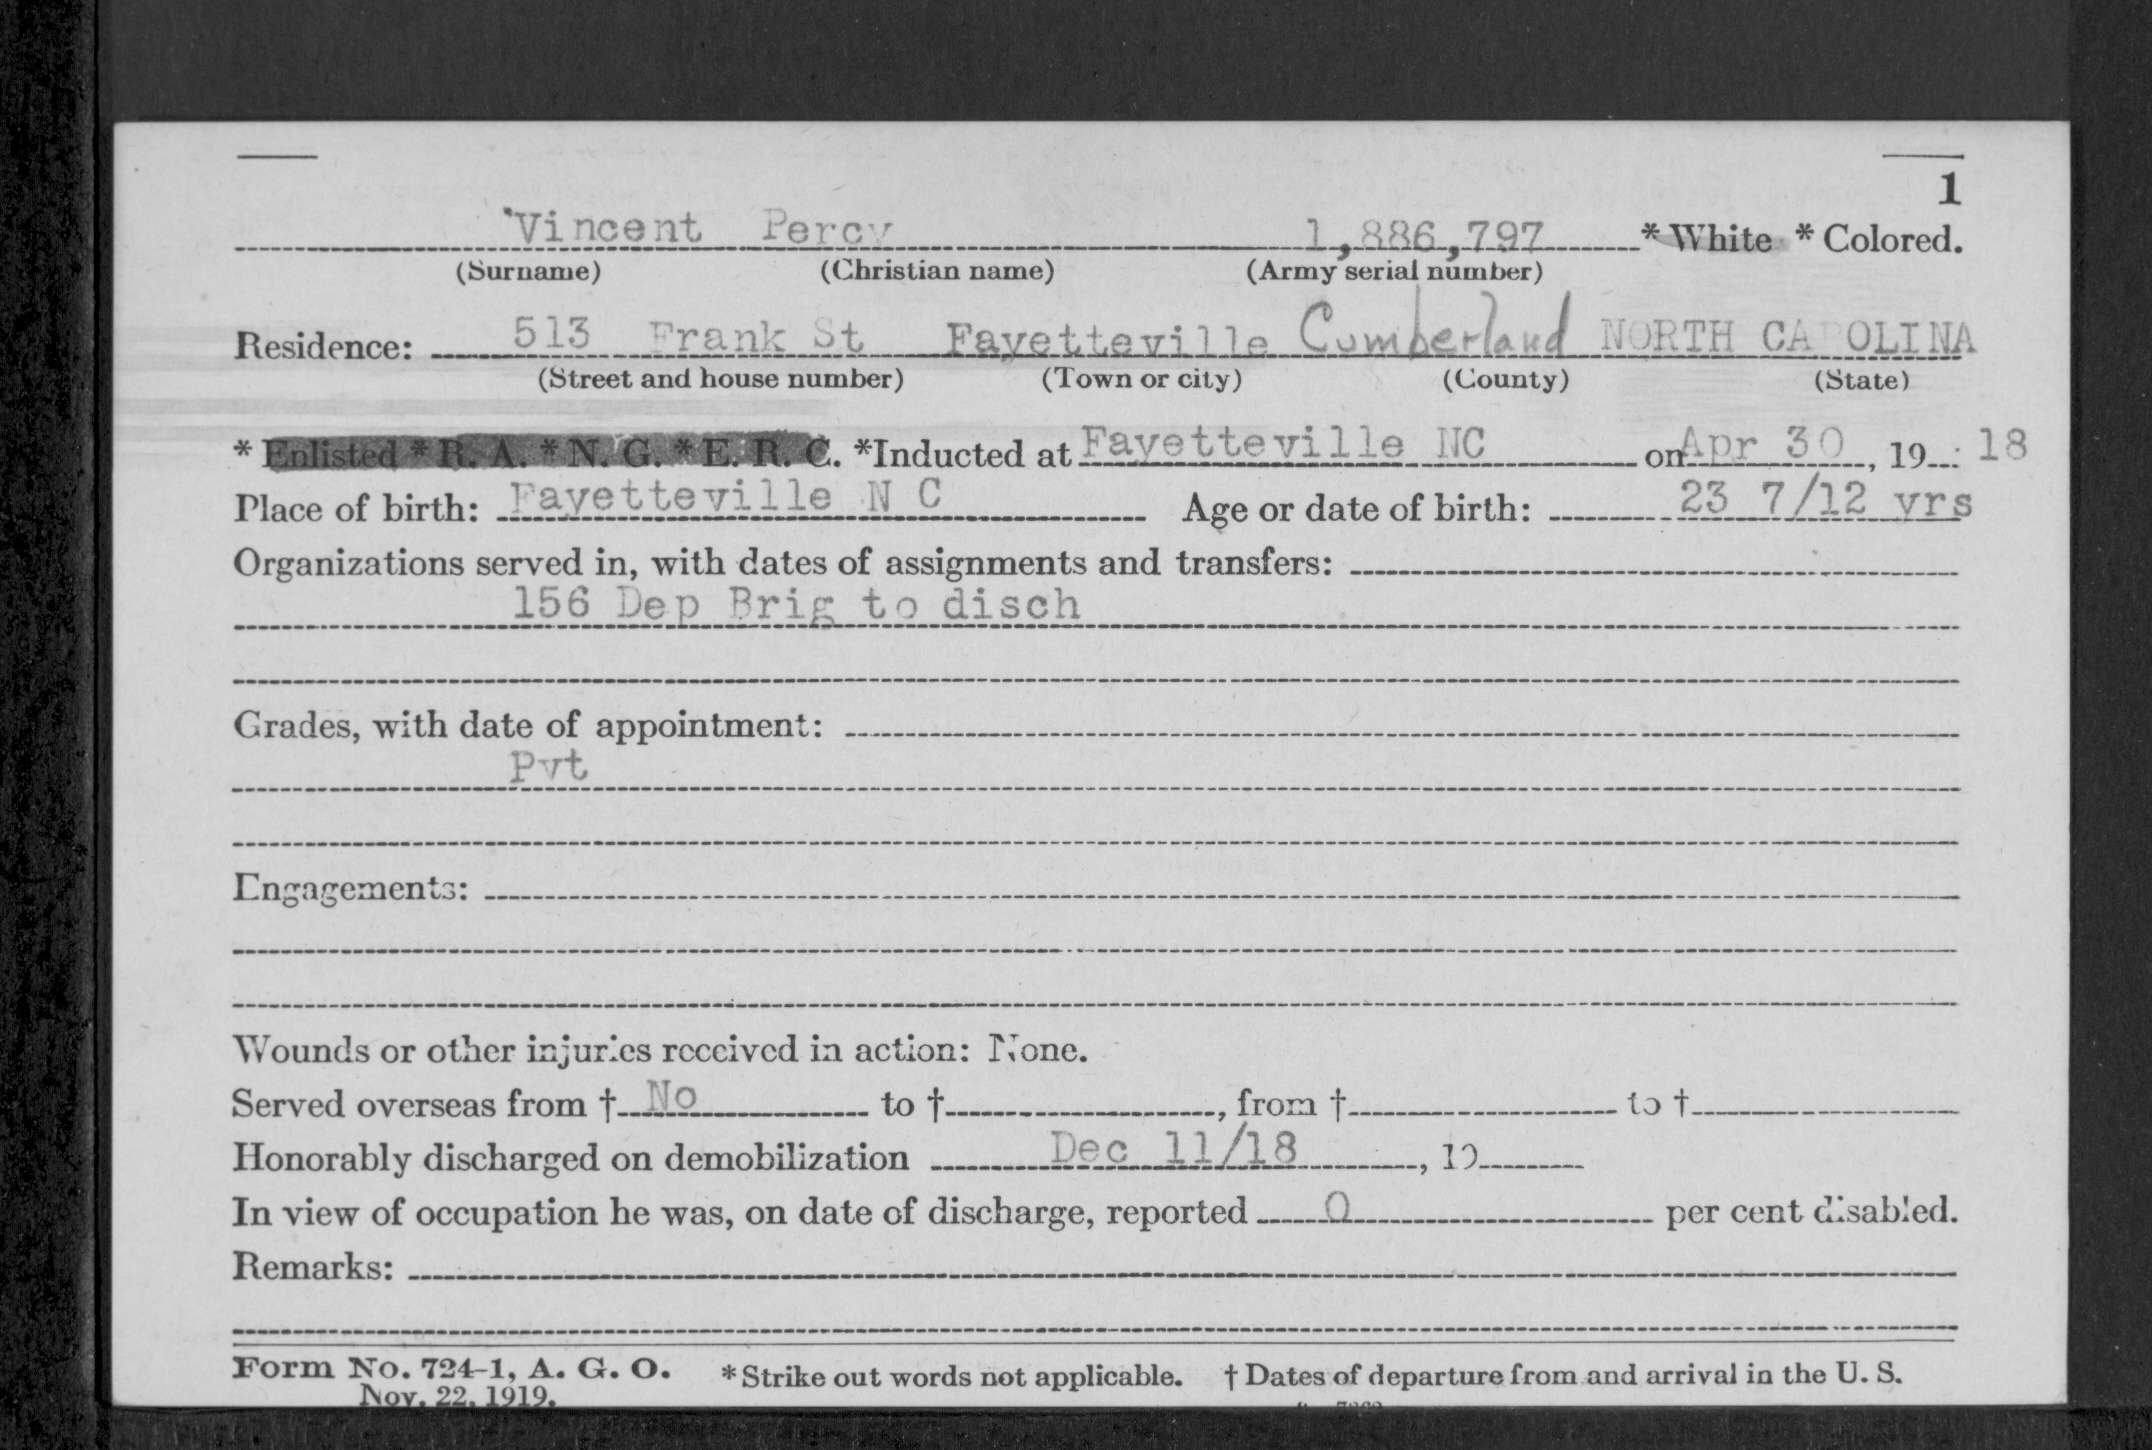 1
Vincent Percy 1,886,797 * White * Colored.
(Surname) (Christian name) (Army serial number)
Residence: 513 Frank St Fayetteville Cumberland NORTH CAROLINA
(Street and house number) (Town or city) (County) (State)
* Enlisted * R. A. * N. G. * E. R. C. *Inducted at Fayetteville NC on Apr 30, 19 18
Place of birth: Fayetteville N C Age or date of birth: 23 7/12 yrs
Organizations served in, with dates of assignments and transfers:
156 Dep Brig to disch
Grades, with date of appointment:
Pvt
Engagements:
Wounds or other injuries received in action: None.
Served overseas from † No to † , from † to †
Honorably discharged on demobilization Dec 11/18 , 19
In view of occupation he was, on date of discharge, reported 0 per cent disabled.
Remarks:
Form No. 724-1, A. G. O. * Strike out words not applicable. † Dates of departure from and arrival in the U. S.
Nov. 22, 1919.